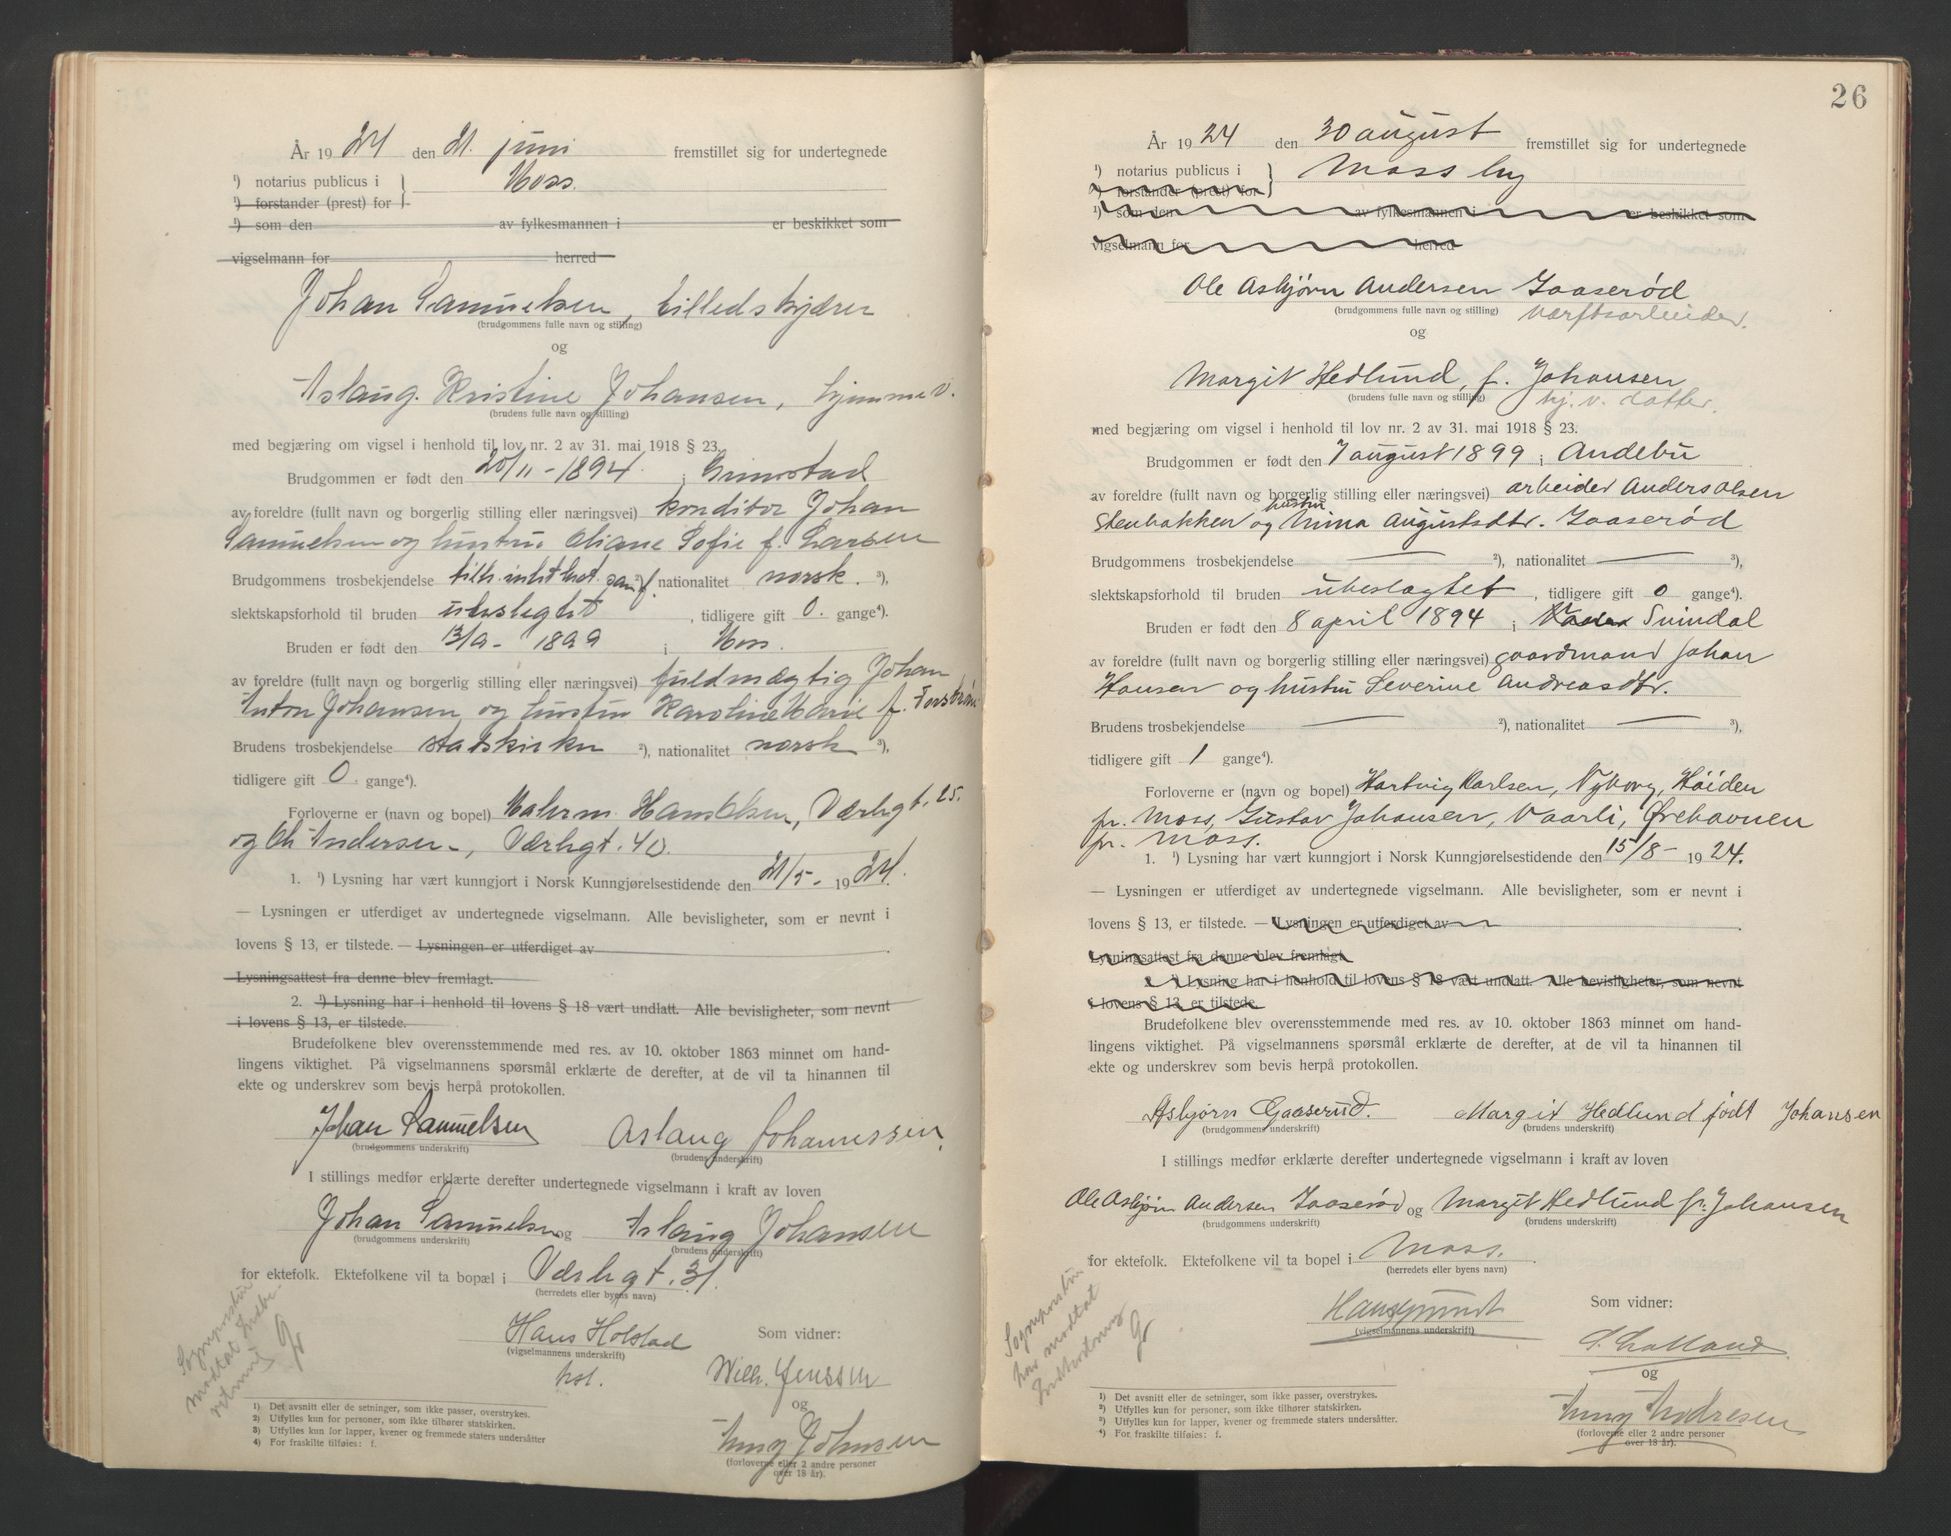 År 1924 den 21. juni fremstillet sig for undertegnede
¹) notarius publicus i } Moss.
¹) forstander (prest) for
¹) som den av fylkesmannen i er beskikket som
vigselmann for herred
Johan Samuelsen, billedskjærer
(brudgommens fulle navn og stilling)
og
Aslaug Kristine Johansen, hjemmev.
(brudens fulle navn og stilling)
med begjæring om vigsel i henhold til lov nr. 2 av 31. mai 1918 § 23.
Brudgommen er født den 20/11 - 1894 i Grimstad
av foreldre (fullt navn og borgerlig stilling eller næringsvei) konditor Johan
Samuelsen og hustru Oliane Sofie f. Larsen
Brudgommens trosbekjendelse tilh. intet trot. samf. ²), nationalitet norsk. ³),
slektskapsforhold til bruden ubeslegtet, tidligere gift 0. gange⁴).
Bruden er født den 13/9 - 1899 i Moss.
av foreldre (fullt navn og borgerlig stilling eller næringsvei) fuldmægtig Johan
Anton Johansen og hustru Karoline Marie f.
Brudens trosbekjendelse statskirken ²), nationalitet norsk ³),
tidligere gift 0. gange⁴).
Forloverne er (navn og bopel) Hansen, Værlegt. 25.
og Andersen, Værlegt. 40.
1. ¹) Lysning har vært kunngjort i Norsk Kunngjørelsestidende den 21/5 - 1924.
— Lysningen er utferdiget av undertegnede vigselmann. Alle bevisligheter, som er nevnt i
lovens § 13, er tilstede. — Lysningen er utferdiget av
Lysningsattest fra denne blev fremlagt.
2. ¹) Lysning har i henhold til lovens § 18 vært undlatt. Alle bevisligheter, som nevnt
i lovens § 13, er tilstede.
Brudefolkene blev overensstemmende med res. av 10. oktober 1863 minnet om hand-
lingens viktighet. På vigselmannens spørsmål erklærte de derefter, at de vil ta hinannen til
ekte og underskrev som bevis herpå protokollen.
Johan Samuelsen Aslaug Johannssen.
(brudgommens underskrift) (brudens underskrift)
I stillings medfør erklærte derefter undertegnede vigselmann i kraft av loven
Johan Samuelsen og Aslaug Johansen
(brudgommens underskrift) (brudens underskrift)
for ektefolk. Ektefolkene vil ta bopæl i Værlegt. 31.
(herredets eller byens navn)
Sogneprestin modtat
Hans Holstad Som vidner:
(vigselmannens underskrift)
Wilh. Jenssen
og
Johnsen
(forloverne eller 2 andre personer
over 18 år).
1) Det avsnitt eller de setninger, som ikke passer, overstrykes.
2) Utfylles kun for personer, som ikke tilhører statskirken.
3) Utfylles kun for lapper, kvener og fremmede staters undersåtter
4) For fraskilte tilføies: f.
26
År 1924 den 30 august fremstillet sig for undertegnede
¹) notarius publicus i } Moss by
¹) forstander (prest) for
¹) som den av fylkesmannen i er beskikket som
vigselmann for herred
Ole Asbjørn Andersen Gaaserød
(brudgommens fulle navn og stilling) værftsarbeider.
og
Margit Hedlund, f. Johansen
(brudens fulle navn og stilling) hj. v. datter.
med begjæring om vigsel i henhold til lov nr. 2 av 31. mai 1918 § 23.
Brudgommen er født den 7 august 1899 i Andebu
av foreldre (fullt navn og borgerlig stilling eller næringsvei) arbeider Anders Olsen
Stenbakken og hustru Mina Augustsdtr. Gaaserød
Brudgommens trosbekjendelse — ²), nationalitet — ³),
slektskapsforhold til bruden ubeslægtet, tidligere gift 0 gange⁴).
Bruden er født den 8 april 1894 i Svindal
av foreldre (fullt navn og borgerlig stilling eller næringsvei) gaardmand Johan
Hansen og hustru Severine Andreasdtr.
Brudens trosbekjendelse — ²), nationalitet — ³),
tidligere gift 1 gange⁴).
Forloverne er (navn og bopel) Hartvig Karlsen, Nyborg, Høiden
pr. Moss, Gustav Johansen, Vaarli, Ørehavnen
pr. Moss.
1. ¹) Lysning har vært kunngjort i Norsk Kunngjørelsestidende den 15/8 - 1924.
— Lysningen er utferdiget av undertegnede vigselmann. Alle bevisligheter, som er nevnt i
lovens § 13, er tilstede. — Lysningen er utferdiget av
Lysningsattest fra denne blev fremlagt.
2. ¹) Lysning har i henhold til lovens § 18 vært undlatt. Alle bevisligheter, som nevnt
i lovens § 13, er tilstede.
Brudefolkene blev overensstemmende med res. av 10. oktober 1863 minnet om hand-
lingens viktighet. På vigselmannens spørsmål erklærte de derefter, at de vil ta hinannen til
ekte og underskrev som bevis herpå protokollen.
Asbjørn Gaaserud. Margit Hedlund født Johansen
(brudgommens underskrift) (brudens underskrift)
I stillings medfør erklærte derefter undertegnede vigselmann i kraft av loven
Ole Asbjørn Andersen Gaaserød og Margit Hedlund f. Johansen
(brudgommens underskrift) (brudens underskrift)
for ektefolk. Ektefolkene vil ta bopel i Moss.
(herredets eller byens navn)
Sogneprestin har modtat
Som vidner:
(vigselmannens underskrift)
og
Andresen
(forloverne eller 2 andre personer
over 18 år).
1) Det avsnitt eller de setninger, som ikke passer, overstrykes.
2) Utfylles kun for personer, som ikke tilhører statskirken.
3) Utfylles kun for lapper, kvener og fremmede staters undersåtter.
4) For fraskilte tilføies: f.